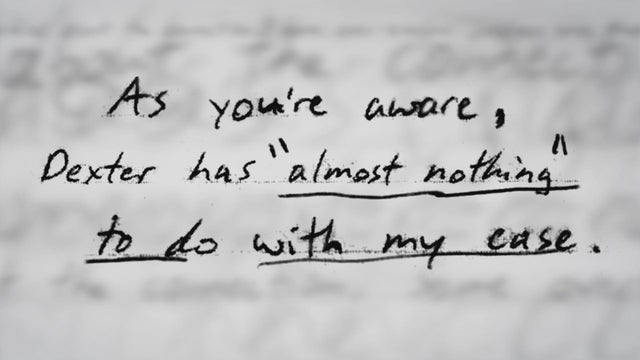 As you're aware,
Dexter has "almost nothing"
to do with my case.